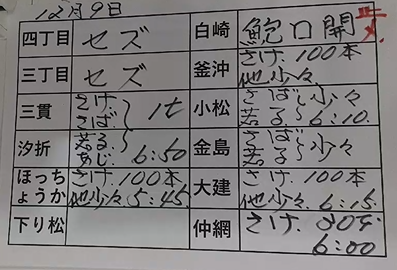 12月9日
四丁目 セズ 白崎 鮑口開
三丁目 セズ 釜沖 さけ.100本
他少々
三貫 さけ. さば. 1t 小松 さば 少々
若る 6:10.
汐折 若る. あじ. 6:50 金島 さば 若る 少々
ほっちょうか さけ.100本
他少々 5:45. 大建 さけ.100本
他少々. 6:15.
下り松 仲網 さけ.
6:00